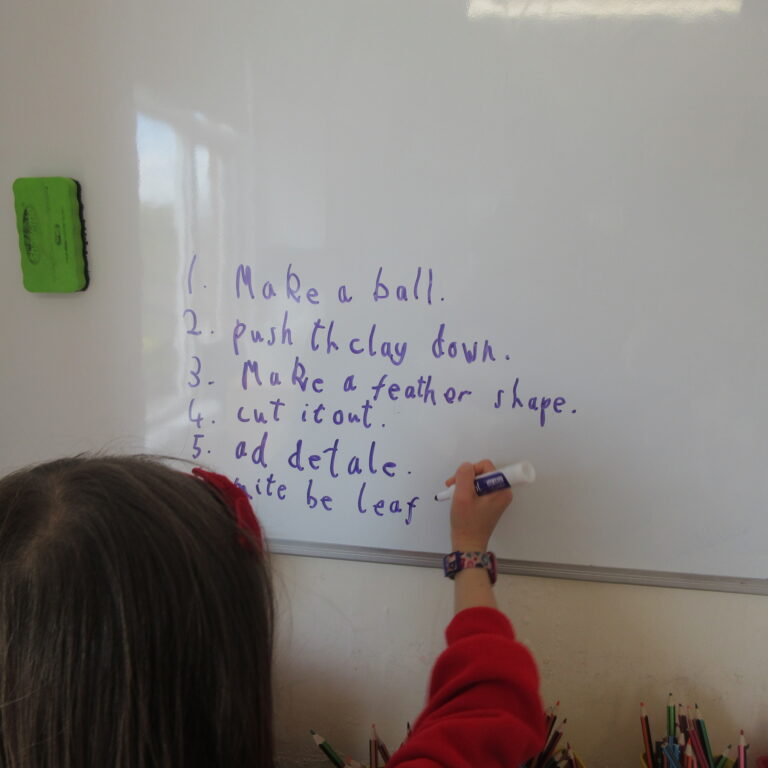 1. Make a ball.
2. push th clay down.
3. Make a feather shape.
4. cut it out.
5. ad detale.
be leaf